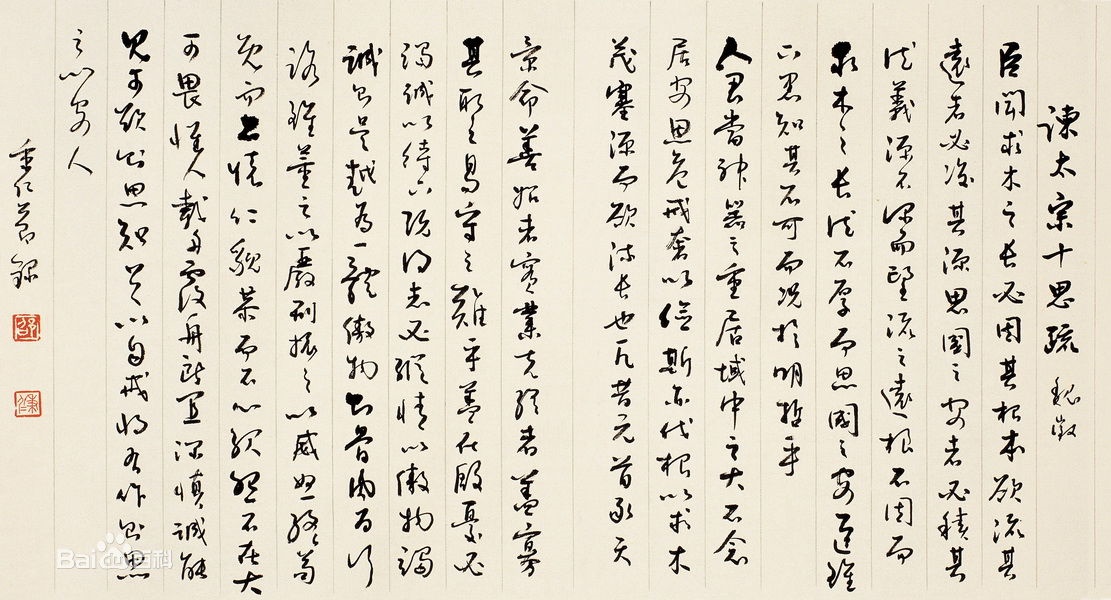 諫太宗十思疏 魏徵
臣聞求木之長必固其根本欲流其
遠者必浚其源思國之安者必積其
德義源不深而望流之遠根不固而
求木之長德不厚而思國之安臣雖
下愚知其不可而況於明哲乎
人君當神器之重居域中之大不念
居安思危戒奢以儉斯亦伐根以求木
茂塞源而欲流長也凡昔元首承天
景命善始者實繁克終者蓋寡
其取之易守之難乎蓋在殷憂必
竭誠以待下既得志必縱情以傲物竭
誠則吳越為一體傲物則骨肉為行
路雖董之以嚴刑振之以威怒終苟
免而不懷仁貌恭而不心服怨不在大
可畏惟人載舟覆舟所宜深慎誠能
見可欲則思知足以自戒將有作則思
止以安人
節錄
Bai百科